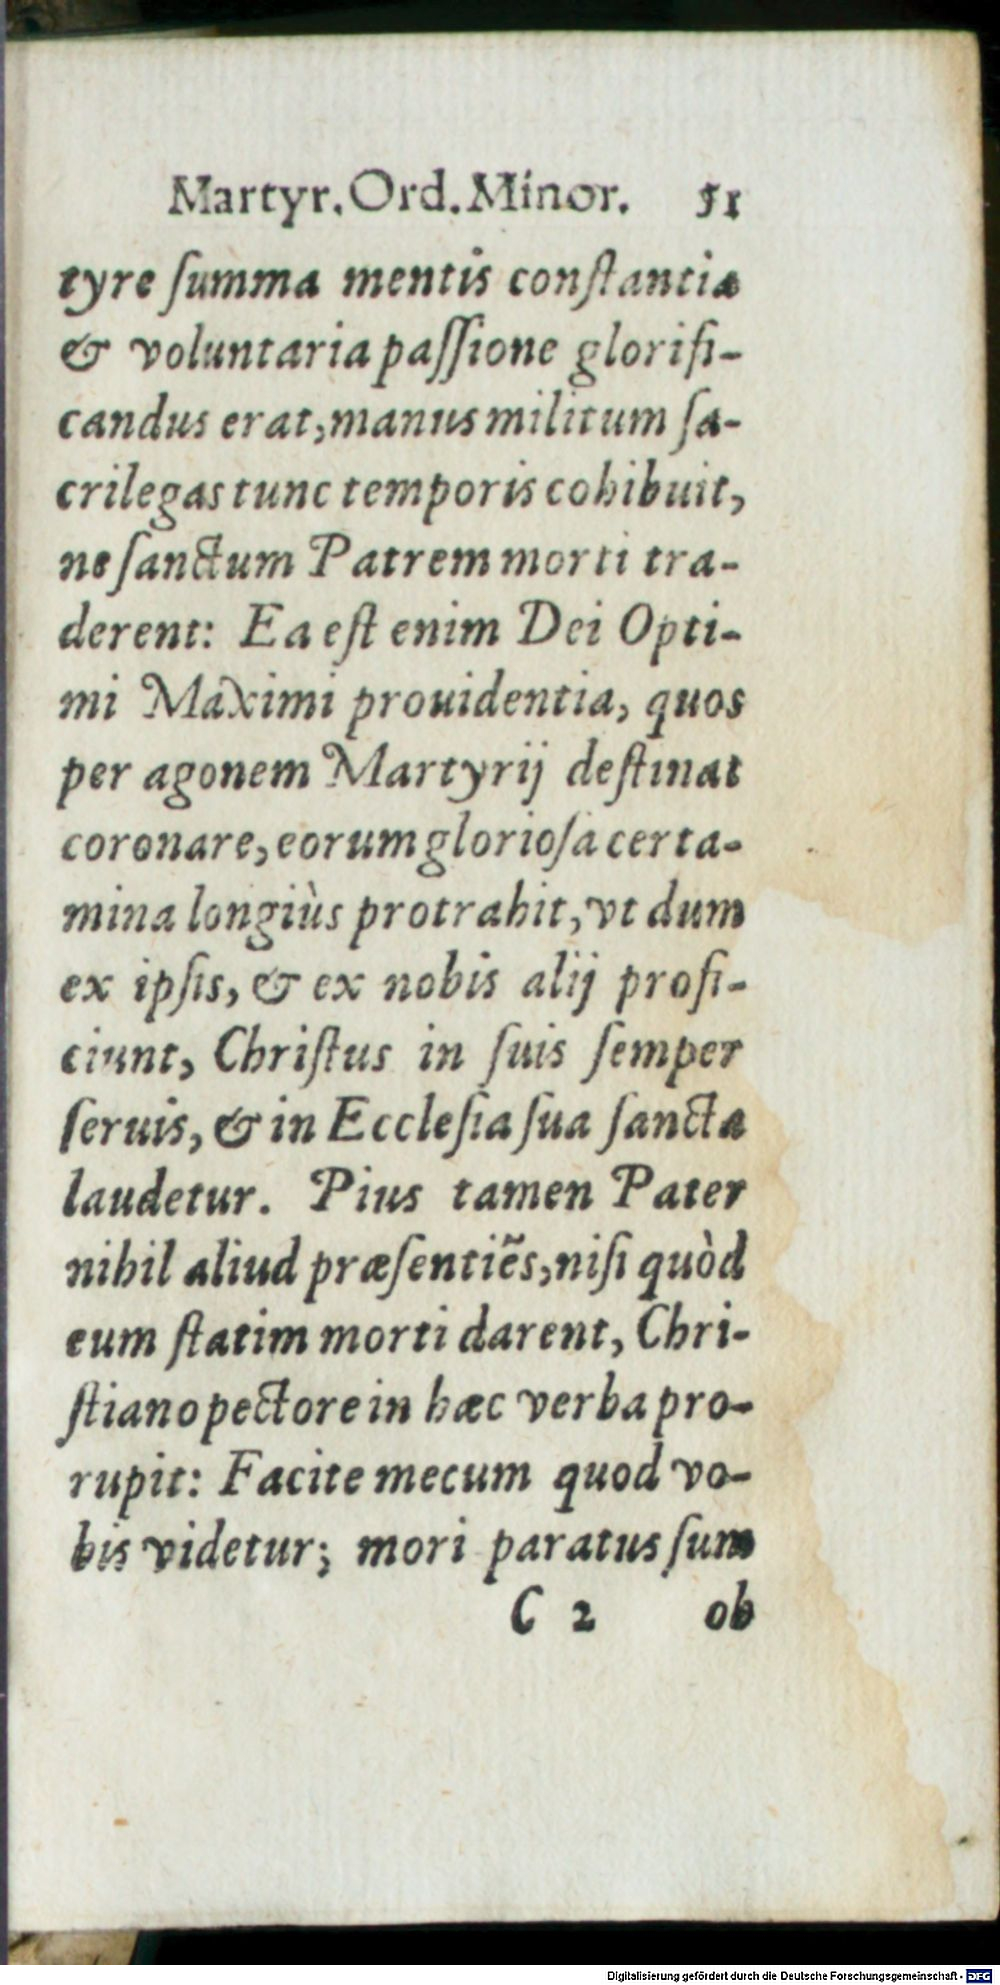 Martyr. Ord. Minor. 51
tyre ſumma mentis conſtantia
& voluntaria paſſione glorifi-
candus erat, manus militum ſa-
crilegas tunc temporis cohibuit,
ne ſanctum Patrem morti tra-
derent: Ea eſt enim Dei Opti-
mi Maximi prouidentia, quos
per agonem Martyrij deſtinat
coronare, eorum glorioſa certa-
mina longiùs protrahit, vt dum
ex ipſis, & ex nobis alij profi-
ciunt, Chriſtus in ſuis ſemper
ſeruis, & in Eccleſia ſua ſancta
laudetur. Pius tamen Pater
nihil aliud præſentiẽs, niſi quòd
eum ſtatim morti darent, Chri-
ſtiano pectore in hæc verba pro-
rupit: Facite mecum quod vo-
bis videtur; mori paratus ſum
C 2 ob
Digitalisierung gefördert durch die Deutsche Forschungsgemeinschaft - DFG